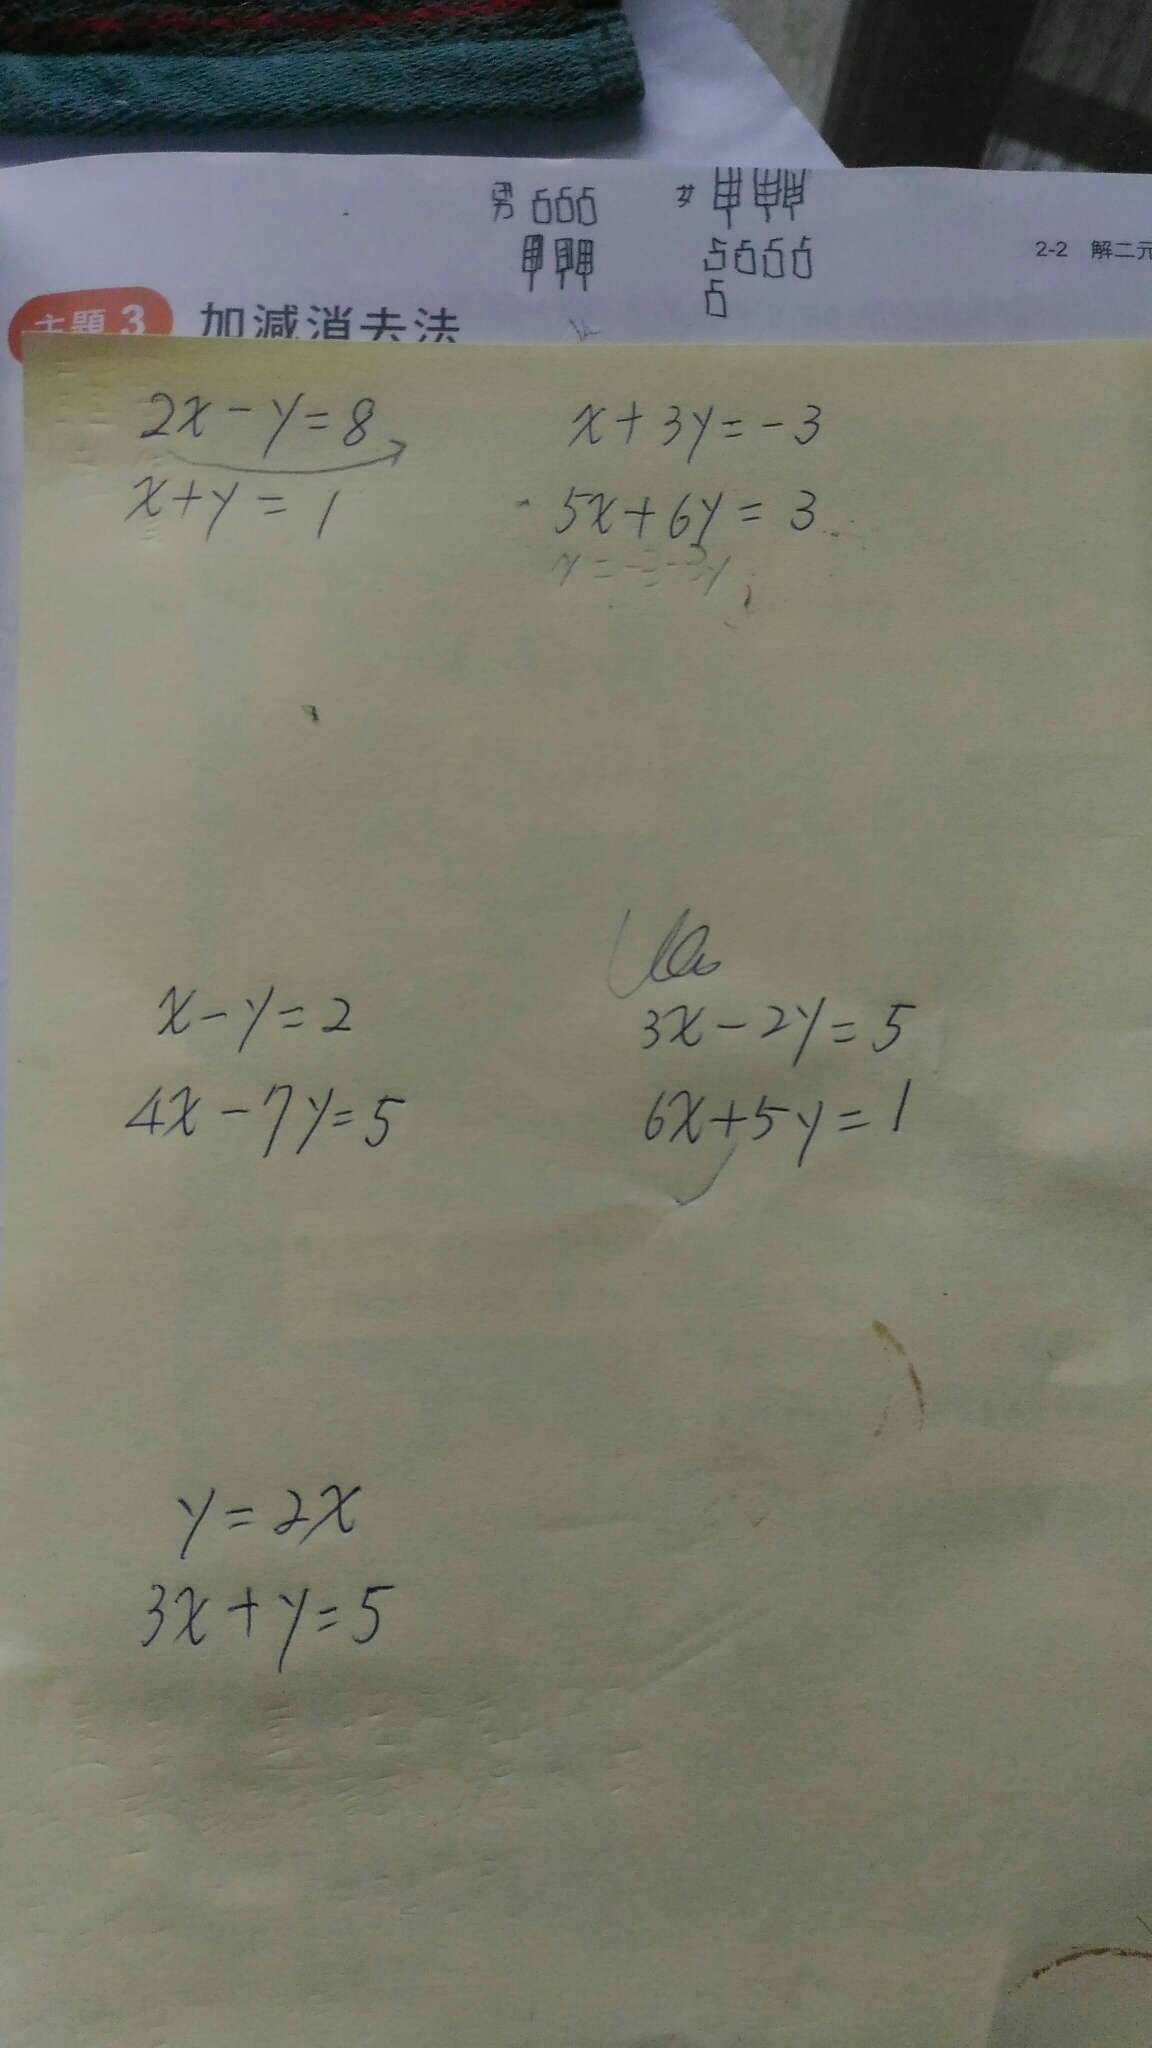 男
女
2-2 解二元
主題 3 加減消去法
2x-y=8
x+y=1
x+3y=-3
5x+6y=3
x=-3-3y
x-y=2
4x-7y=5
3x-2y=5
6x+5y=1
y=2x
3x+y=5